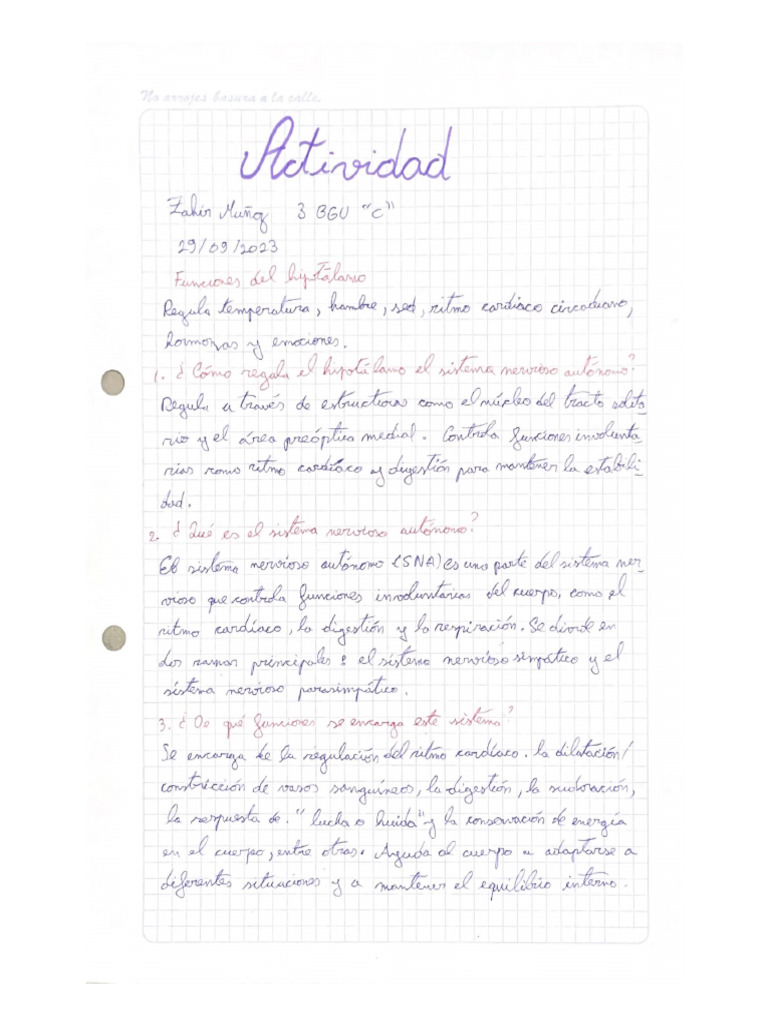 No arrojes basura a la calle.
Actividad
Zahir Muñoz 3 BGU "C"
29/09/2023
Funciones del hipotálamo
Regula temperatura, hambre, sed, ritmo cardíaco circadiano,
hormonas y emociones.
1. ¿Cómo regala el hipotálamo el sistema nervioso autónomo?
Regula a través de estructuras como el núcleo del tracto solita-
rio y el área preóptica medial. Controla funciones involunta-
rias como ritmo cardíaco y digestión para mantener la estabili-
dad.
2. ¿Qué es el sistema nervioso autónomo?
El sistema nervioso autónomo (SNA) es una parte del sistema ner-
vioso que controla funciones involuntarias del cuerpo, como el
ritmo cardíaco, la digestión y la respiración. Se divide en
dos ramas principales: el sistema nervioso simpático y el
sistema nervioso parasimpático.
3. ¿De qué funciones se encarga este sistema?
Se encarga de la regulación del ritmo cardíaco. la dilatación/
constricción de vasos sanguíneos, la digestión, la sudoración,
la respuesta de. "lucha o huida" y la conservación de energía
en el cuerpo, entre otras. Ayuda al cuerpo a adaptarse a
diferentes situaciones y a mantener el equilibrio interno.